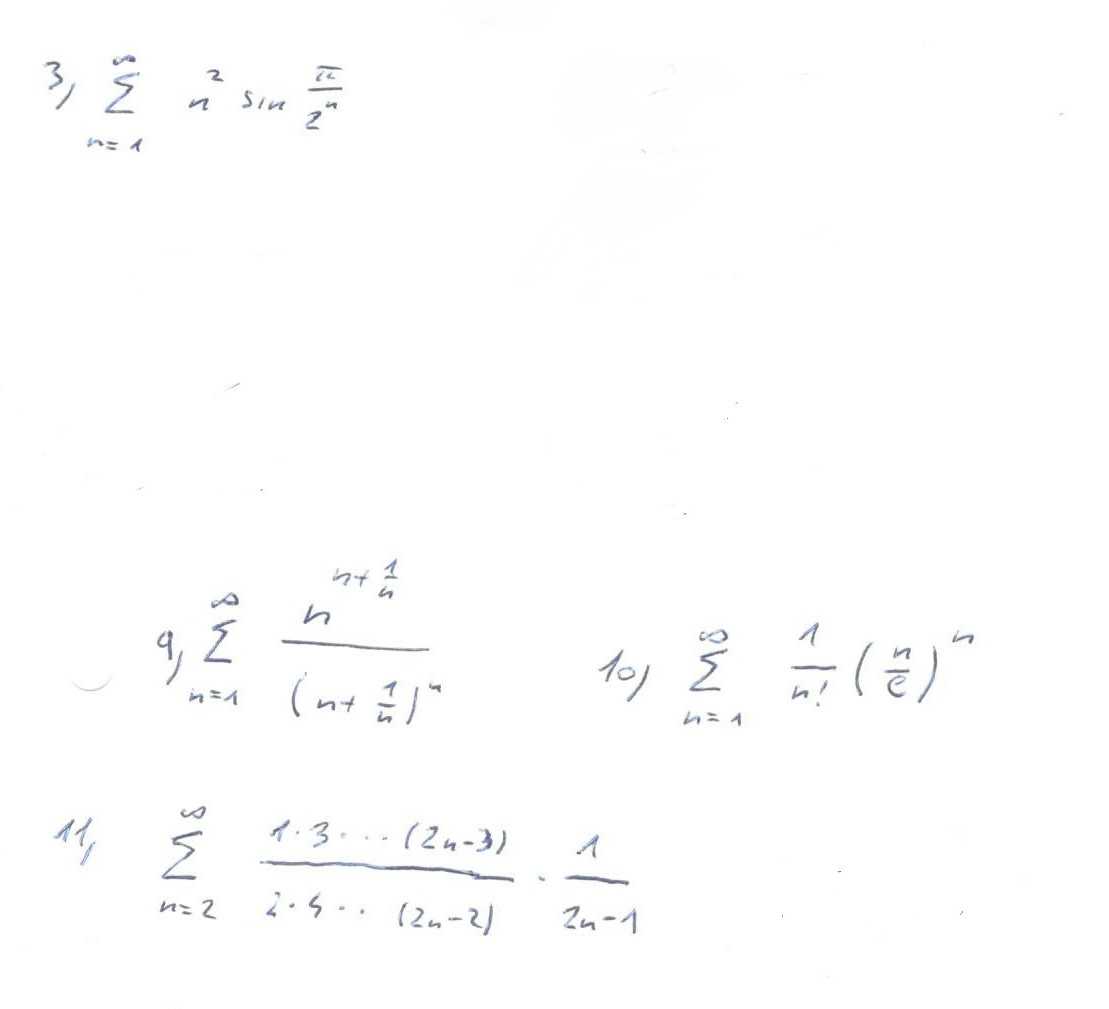 3, $\sum_{n=1}^{\infty} n^2 \sin \frac{\pi}{2^n}$
9, $\sum_{n=1}^{\infty} \frac{n^{n+\frac{1}{n}}}{(n+\frac{1}{n})^n}$ 10) $\sum_{n=1}^{\infty} \frac{1}{n!} \left(\frac{n}{e}\right)^n$
11, $\sum_{n=2}^{\infty} \frac{1 \cdot 3 \cdot \cdots (2n-3)}{2 \cdot 4 \cdot \cdot (2n-2)} \cdot \frac{1}{2n-1}$